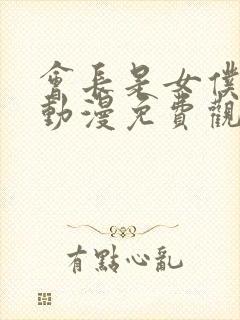 會長是女僕
動漫免費觀
有點心亂